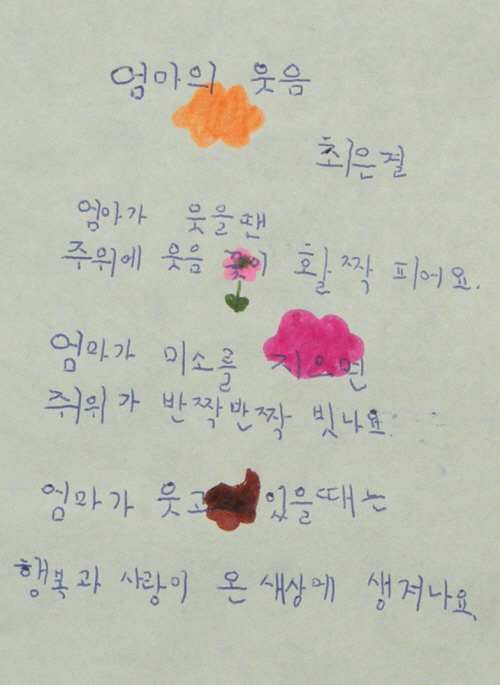 엄마의 웃음
최은결
엄마가 웃을땐
주위에 웃음 꽃이 활짝 피어요.
엄마가 미소를 지으면
주위가 반짝반짝 빗나요.
엄마가 웃고 있을때는
행복과 사랑이 온 새상에 생겨나요.